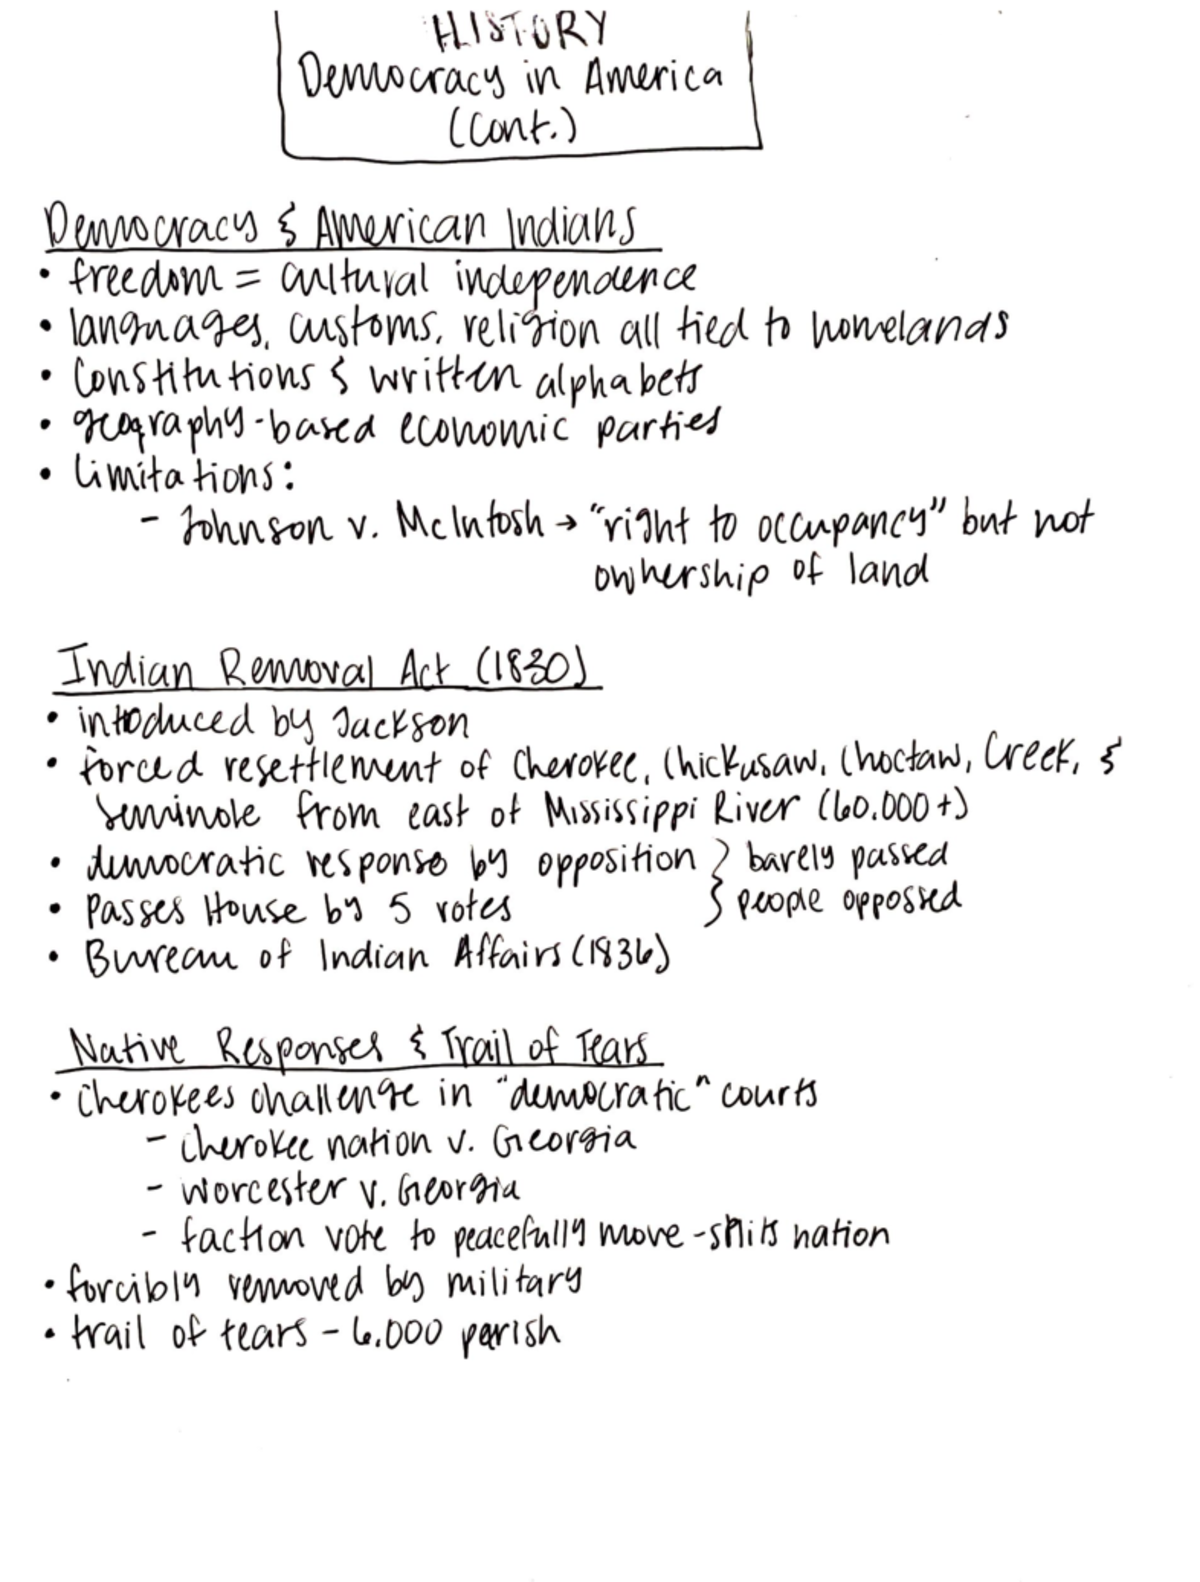 HISTORY
Democracy in America
(Cont.)
Democracy & American Indians
• freedom = cultural independence
• languages, customs, religion all tied to homelands
• Constitutions & written alphabets
• geography-based economic parties
• limitations:
- Johnson v. McIntosh → "right to occupancy" but not
ownership of land
Indian Removal Act (1830)
• introduced by Jackson
• forced resettlement of Cherokee, Chickusaw, Choctaw, Creek, &
Seminole from east of Mississippi River (60,000+)
• democratic response by opposition } barely passed
• Passes House by 5 votes } people oppossed
• Bureau of Indian Affairs (1836)
Native Responses & Trail of Tears
• Cherokees challenge in "democratic" courts
- Cherokee nation v. Georgia
- Worcester v. Georgia
- faction vote to peacefully move - splits nation
• forcibly removed by military
• trail of tears - 6,000 parish